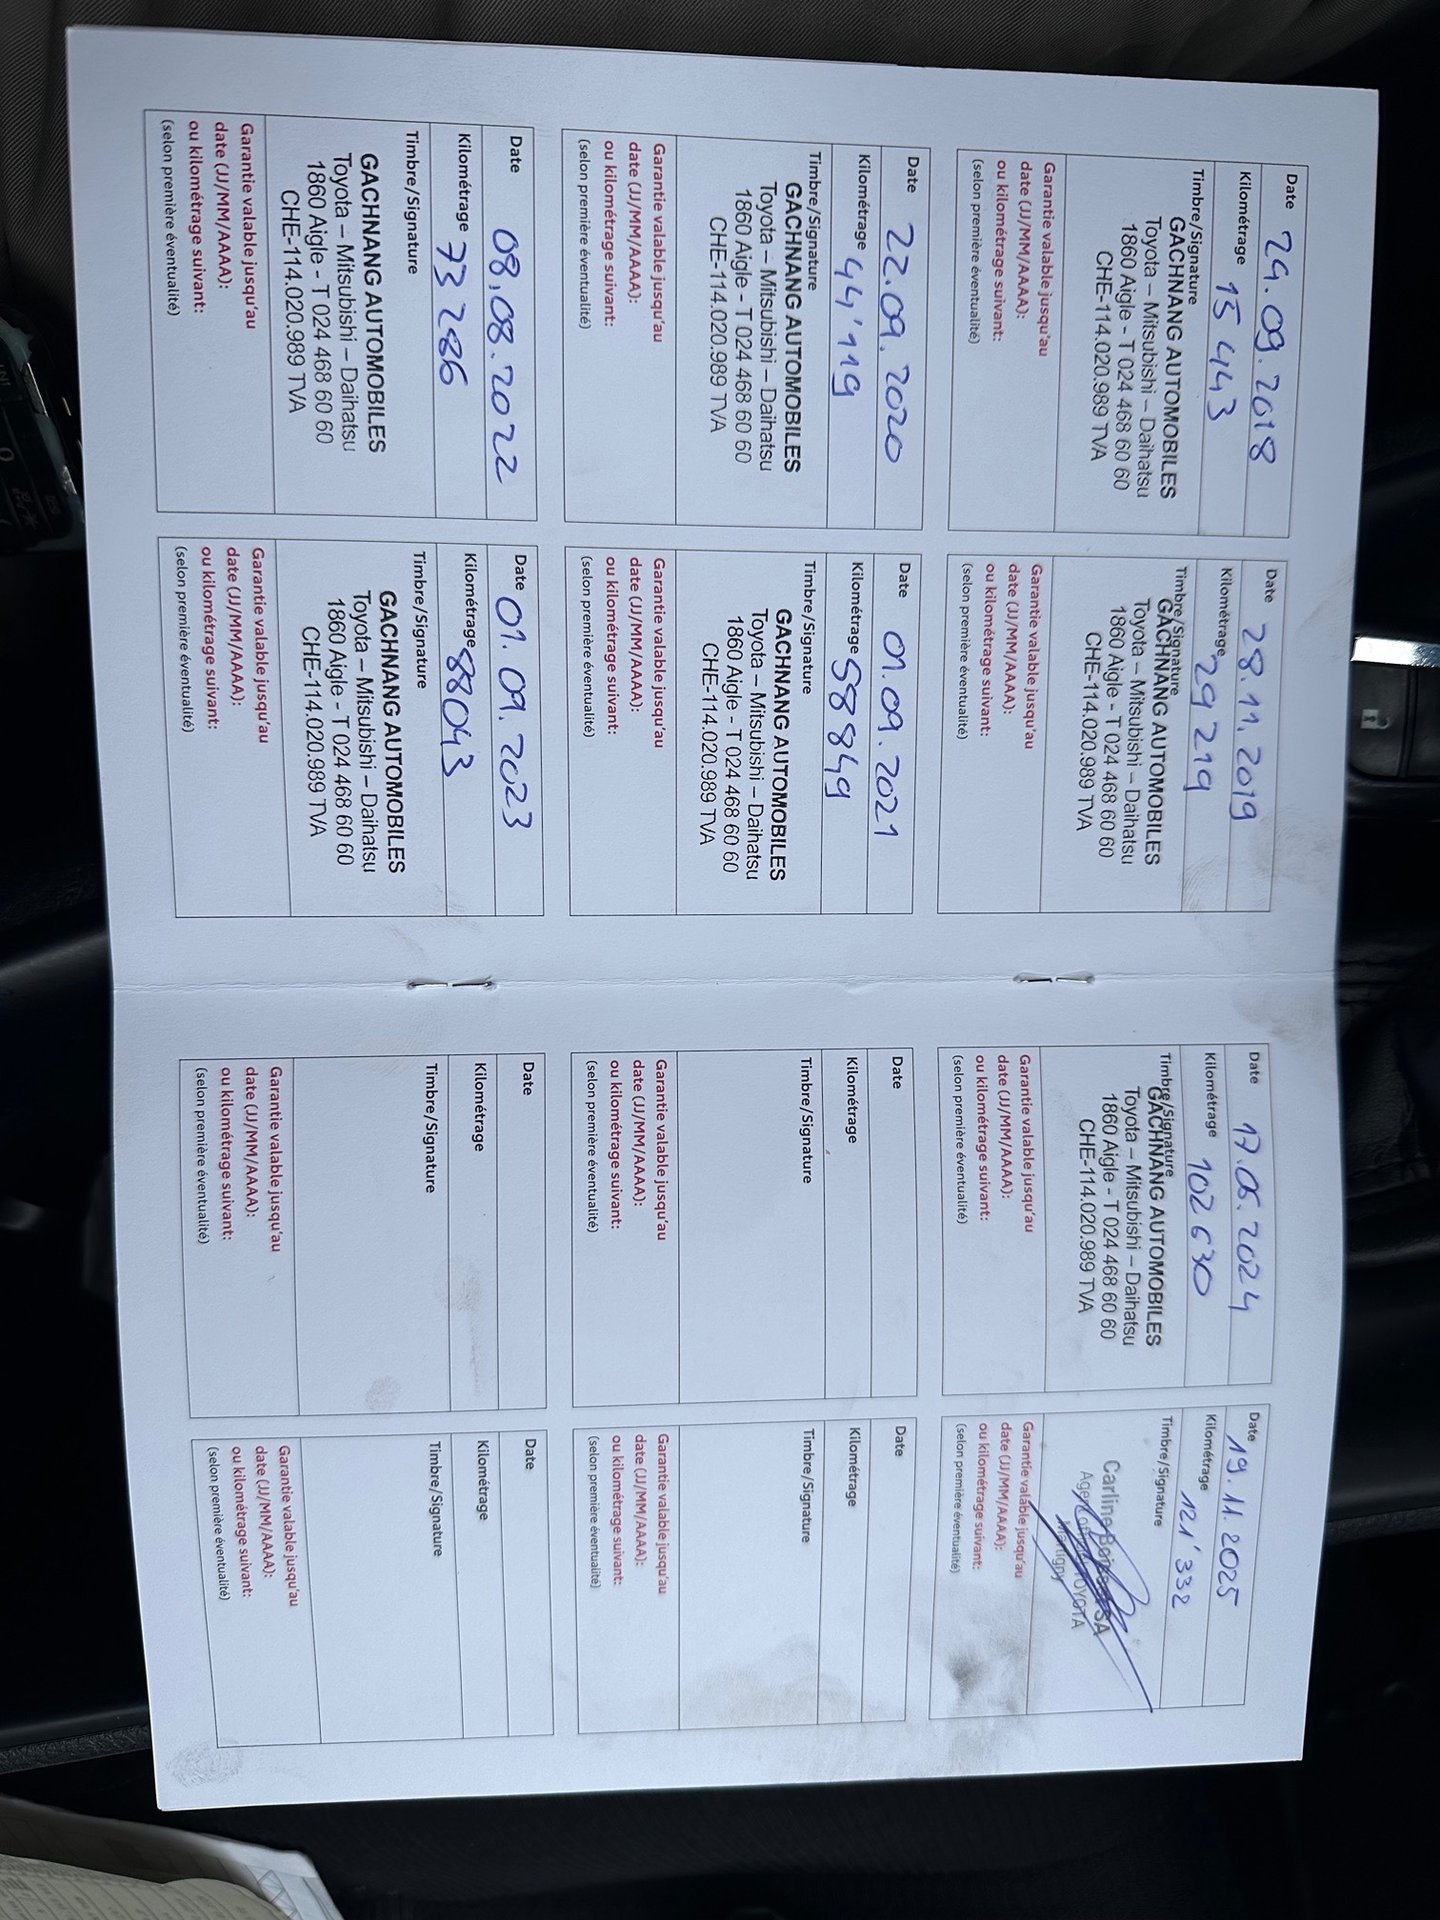 Date 24.09.2018
Kilométrage 15 443
Timbre/Signature
GACHNANG AUTOMOBILES
Toyota – Mitsubishi – Daihatsu
1860 Aigle - T 024 468 60 60
CHE-114.020.989 TVA
Garantie valable jusqu'au
date (JJ/MM/AAAA):
ou kilométrage suivant:
(selon première éventualité)
Date 28.11.2019
Kilométrage 29 219
Timbre/Signature
GACHNANG AUTOMOBILES
Toyota – Mitsubishi – Daihatsu
1860 Aigle - T 024 468 60 60
CHE-114.020.989 TVA
Garantie valable jusqu'au
date (JJ/MM/AAAA):
ou kilométrage suivant:
(selon première éventualité)
Date 22.09.2020
Kilométrage 44'119
Timbre/Signature
GACHNANG AUTOMOBILES
Toyota – Mitsubishi – Daihatsu
1860 Aigle - T 024 468 60 60
CHE-114.020.989 TVA
Garantie valable jusqu'au
date (JJ/MM/AAAA):
ou kilométrage suivant:
(selon première éventualité)
Date 01.09.2021
Kilométrage 58849
Timbre/Signature
GACHNANG AUTOMOBILES
Toyota – Mitsubishi – Daihatsu
1860 Aigle - T 024 468 60 60
CHE-114.020.989 TVA
Garantie valable jusqu'au
date (JJ/MM/AAAA):
ou kilométrage suivant:
(selon première éventualité)
Date 08.08.2022
Kilométrage 73286
Timbre/Signature
GACHNANG AUTOMOBILES
Toyota – Mitsubishi – Daihatsu
1860 Aigle - T 024 468 60 60
CHE-114.020.989 TVA
Garantie valable jusqu'au
date (JJ/MM/AAAA):
ou kilométrage suivant:
(selon première éventualité)
Date 01.09.2023
Kilométrage 88043
Timbre/Signature
GACHNANG AUTOMOBILES
Toyota – Mitsubishi – Daihatsu
1860 Aigle - T 024 468 60 60
CHE-114.020.989 TVA
Garantie valable jusqu'au
date (JJ/MM/AAAA):
ou kilométrage suivant:
(selon première éventualité)
Date 17.05.2024
Kilométrage 102 630
Timbre/Signature
GACHNANG AUTOMOBILES
Toyota – Mitsubishi – Daihatsu
1860 Aigle - T 024 468 60 60
CHE-114.020.989 TVA
Garantie valable jusqu'au
date (JJ/MM/AAAA):
ou kilométrage suivant:
(selon première éventualité)
Date 19.11.2025
Kilométrage 121'332
Timbre/Signature
Carline SA
TOYOTA
Martigny
Garantie valable jusqu'au
date (JJ/MM/AAAA):
ou kilométrage suivant:
(selon première éventualité)
Date
Kilométrage
Timbre/Signature
Garantie valable jusqu'au
date (JJ/MM/AAAA):
ou kilométrage suivant:
(selon première éventualité)
Date
Kilométrage
Timbre/Signature
Garantie valable jusqu'au
date (JJ/MM/AAAA):
ou kilométrage suivant:
(selon première éventualité)
Date
Kilométrage
Timbre/Signature
Garantie valable jusqu'au
date (JJ/MM/AAAA):
ou kilométrage suivant:
(selon première éventualité)
Date
Kilométrage
Timbre/Signature
Garantie valable jusqu'au
date (JJ/MM/AAAA):
ou kilométrage suivant:
(selon première éventualité)